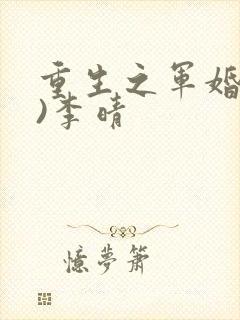 重生之军婚
)李晴
忆梦箫